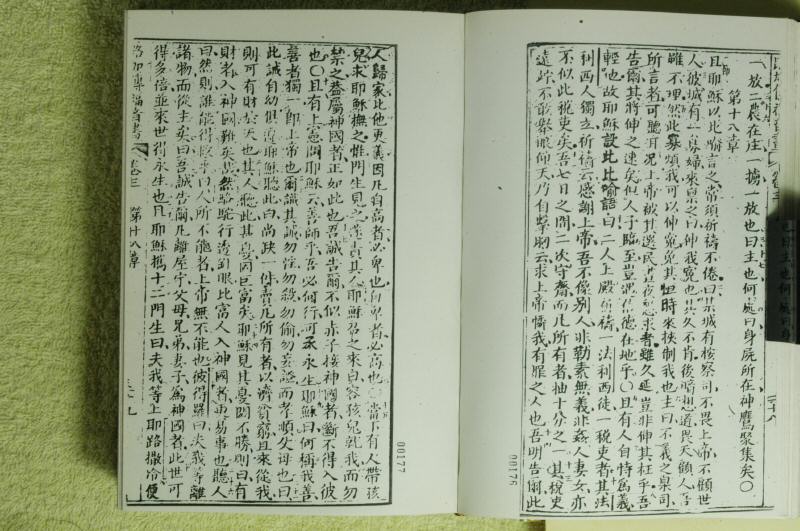 一放二農在庄一擄一放也曰主也何處曰身屍所在神鷹聚集矣〇
第十八章
且耶穌以此喻言之常須祈禱不倦曰某城有榜察司不畏上帝不顧世
人彼城有一寡婦來禀之曰伸我寃也其久不肯後暗想道畏天顧人吾
雖不理然此寡煩我可以伸寃免其恒時來挾制我也主曰不義之臬司
所言者可聽耳況上帝被其選民晝夜懇求者雖久延豈非伸其枉乎吾
告爾其將伸之速矣似人子臨至豈遇信德在地乎〇且有人自恃爲義
輕也故耶穌設此比喻語曰二人上殿祈禱一法利西徒一稅吏者其法
利西人獨立祈禱云感謝上帝吾不像別人非勒素無義非姦人妻女亦
不似此稅吏矣吾七日之間二次守齋而凡所有者抽十分之一其稅吏
遠跡不敢舉眼仰天乃自擊胸云求上帝憐我有罪之人也吾明告爾此
00176
人歸家比他更義因凡自高者必卑也自卑者必高也〇當下有人帶孩
兒求耶穌撫之惟門生見之責其人耶穌召之來白容孩兒就我而勿
禁之蓋屬神國者正如此也吾誠告爾不似赤子接神國者斷不得入彼
也〇且有上憲問耶穌云善師乎吾必何行可承永生耶穌曰何稱我善
善者獨一即上帝也爾識其誡勿淫勿殺勿偷勿妄證而孝順父母也曰
此誡自幼俱遵耶穌聽此白尚缺一件賣凡所有者以濟貧窮且來從我
則可有財於天也其人聽此甚憂因巨富矣耶穌見其憂悶不勝則曰有
財者入神國難矣哉然駱駝行透針眼比富人入神國者更易事也聽人
曰然則誰能得救乎曰人所不能者上帝無不能也彼得羅曰夫我等離
諸物而從主矣曰吾誠告爾凡離屋宇父母兄弟妻子爲神國者此世可
得多倍並來世得永生也且耶穌攜十二門生曰夫我等上耶路撒冷便
路加傳福音書 卷三 第十八章
00177